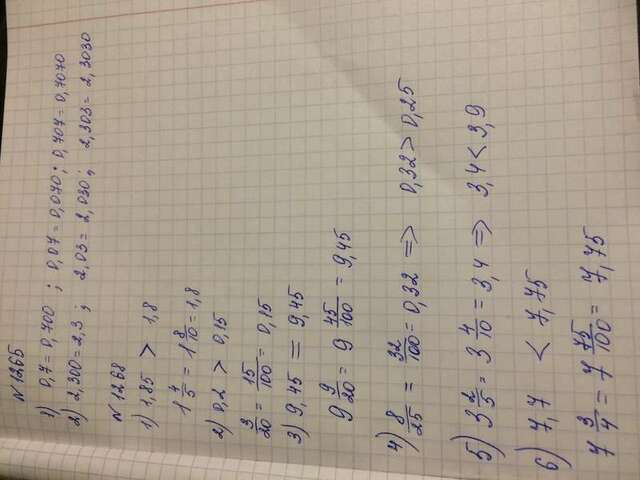 №1265
1) 0,7=0,700 ; 0,07=0,070; 0,707=0,7070
2) 2,300=2,3 ; 2,03= 2,030 ; 2,303= 2,3030
№1268
1) 1,85 > 1,8
1 4/5 = 1 8/10 = 1,8
2) 0,2 > 0,15
3/20 = 15/100 = 0,15
3) 9,45 = 9,45
9 9/20 = 9 45/100 = 9,45
4) 8/25 = 32/100 = 0,32 => 0,32 > 0,25
5) 3 2/5 = 3 4/10 = 3,4 => 3,4 < 3,9
6) 7,7 < 7,75
7 3/4 = 7 75/100 = 7,75